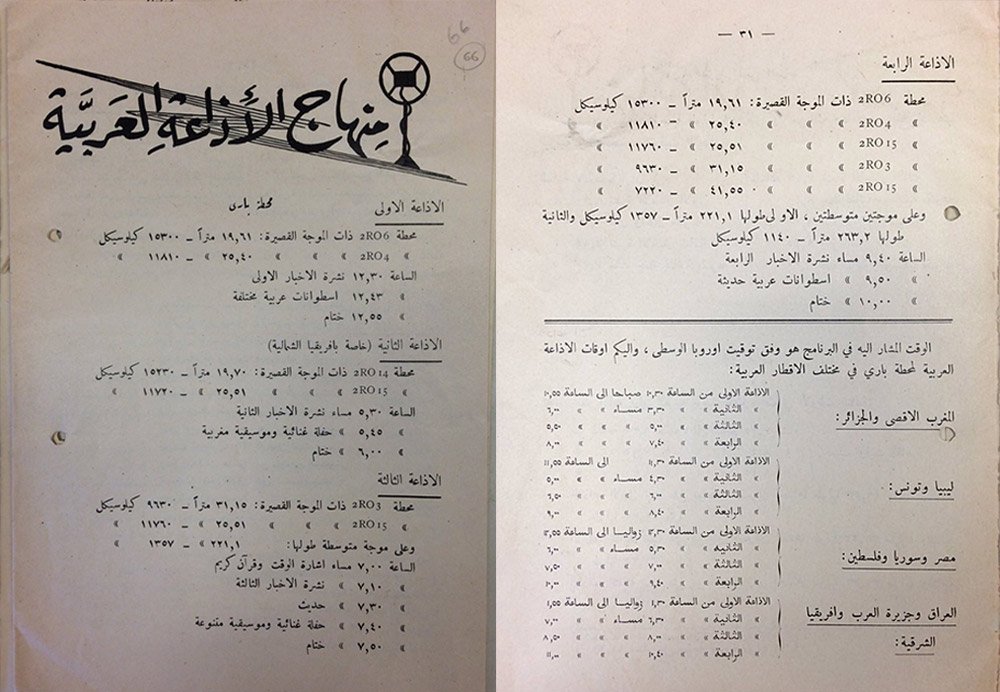 66
66
منهاج الأذاعة العربية
محطة باري
الاذاعة الاولى
محطة 2RO6 ذات الموجة القصيرة: ١٩,٦١ متراً ـ ١٥٣٠٠ كيلوسيكل
» 2RO4 » » » ٢٥,٤٠ » ـ ١١٨١٠ »
الساعة ١٢,٣٠ نشرة الاخبار الاولى
» ١٢,٤٣ اسطوانات عربية مختلفة
» ١٢,٥٥ ختام
الاذاعة الثانية (خاصة بافريقيا الشمالية)
محطة 2RO14 ذات الموجة القصيرة: ١٩,٧٠ متراً ـ ١٥٢٣٠ كيلوسيكل
» 2RO15 » » » ٢٥,٥١ » ـ ١١٧٢٠ »
الساعة ٥,٣٠ مساء نشرة الاخبار الثانية
» ٥,٤٥ » حفلة غنائية وموسيقية مغربية
» ٦,٠٠ » ختام
الاذاعة الثالثة
محطة 2RO3 ذات الموجة القصيرة: ٣١,١٥ متراً ـ ٩٦٣٠ كيلوسيكل
» 2RO15 » » » ٢٥,٥١ » ـ ١١٧٦٠ »
وعلى موجة متوسطة طولها: ٢٢١,١ » ـ ١٣٥٧ »
الساعة ٧,٠٠ مساء اشارة الوقت وقرآن كريم
» ٧,١٠ » نشرة الاخبار الثالثة
» ٧,٣٠ » حديث
» ٧,٤٠ » حفلة غنائية وموسيقية متنوعة
» ٧,٥٠ » ختام
— ٣١ —
الاذاعة الرابعة
محطة 2RO6 ذات الموجة القصيرة: ١٩,٦١ متراً ـ ١٥٣٠٠ كيلوسيكل
» 2RO4 » » » ٢٥,٤٠ ـ ١١٨١٠ »
» 2RO15 » » » ٢٥,٥١ ـ ١١٧٦٠ »
» 2RO3 » » » ٣١,١٥ ـ ٩٦٣٠ »
» 2RO15 » » » ٤١,٥٥ ـ ٧٢٢٠ »
وعلى موجتين متوسطتين، الاولى طولها ٢٢١,١ متراً ـ ١٣٥٧ كيلوسيكل والثانية
طولها ٢٦٣,٢ متراً ـ ١١٤٠ كيلوسيكل
الساعة ٩,٤٠ مساء نشرة الاخبار الرابعة
» ٩,٥٠ » اسطوانات عربية حديثة
» ١٠,٠٠ » ختام
الوقت المشار اليه في البرنامج هو وفق توقيت اوروبا الوسطى، واليكم اوقات الاذاعة
العربية لمحطة باري في مختلف الاقطار العربية:
المغرب الاقصى والجزائر:
الاذاعة الاولى من الساعة ١٠,٣٠ صباحا الى الساعة ١٠,٥٥
» الثانية » » ٣,٣٠ مساء » » ٦,٠٠
» الثالثة » » ٥,٠٠ » » » ٥,٥٠
» الرابعة » » ٧,٤٠ » » » ٨,٠٠
ليبيا وتونس:
الاذاعة الاولى من الساعة ١١,٣٠ الى الساعة ١١,٥٥
» الثانية » » ٤,٣٠ مساء » » ٥,٠٠
» الثالثة » » ٦,٠٠ » » » ٦,٥٠
» الرابعة » » ٨,٤٠ » » » ٩,٠٠
مصر وسوريا وفلسطين:
الاذاعة الاولى من الساعة ١٢,٣٠ زواليا الى الساعة ١٢,٥٥
» الثانية » » ٥,٣٠ مساء » » ٦,٠٠
» الثالثة » » ٧,٠٠ » » » ٧,٥٠
» الرابعة » » ٩,٤٠ » » » ١٠,٠٠
العراق وجزيرة العرب وافريقيا
الشرقية:
الاذاعة الاولى من الساعة ١,٣٠ زواليا الى الساعة ١,٥٥
» الثانية » » ٦,٣٠ مساء » » ٧,٠٠
» الثالثة » » ٨,٠٠ » » » ٨,٥٠
» الرابعة » » ١٠,٤٠ » » » ١١,٠٠